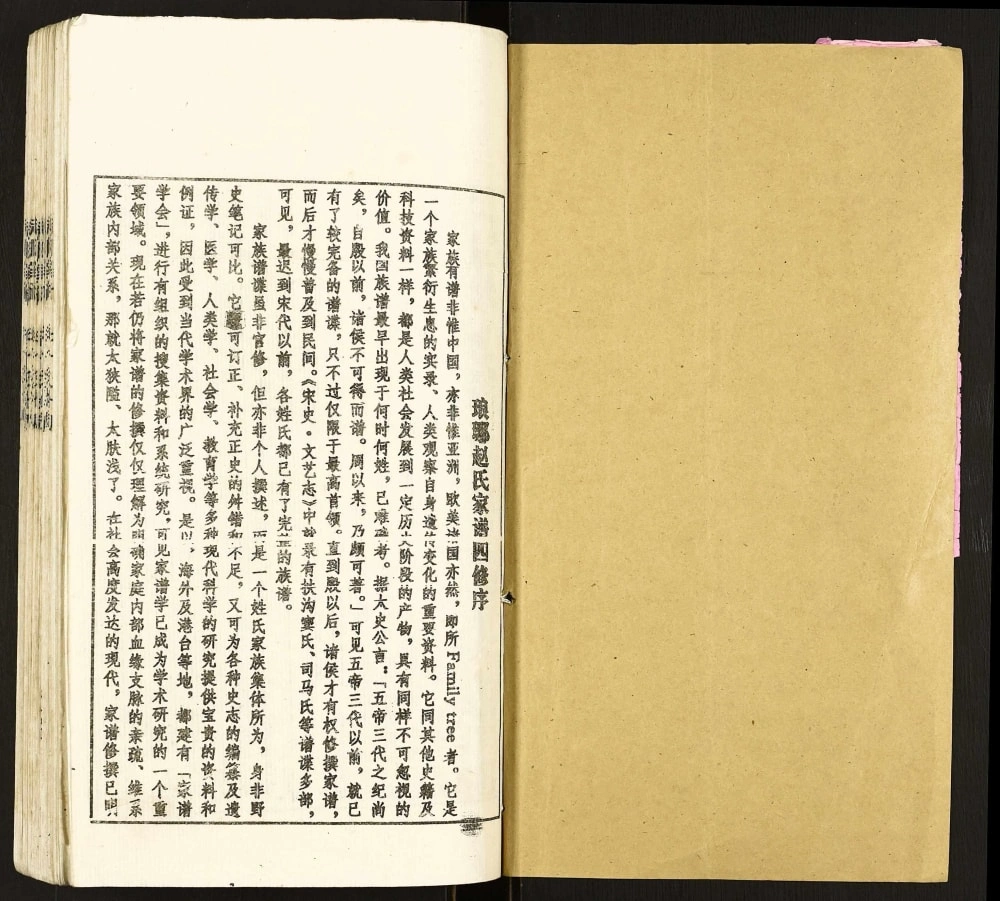 琅琊赵氏家谱四修序
家族有谱非惟中国，亦非惟亚洲，欧美诸国亦然，即所Family tree者。它是
一个家族繁衍生息的实录、人类观察自身遗传变化的重要资料。它同其他史籍及
科技资料一样，都是人类社会发展到一定历史阶段的产物，具有同样不可忽视的
价值。我国族谱最早出现于何时何姓，已难确考。据太史公言：「五帝三代之纪尚
矣，自殷以前，诸侯不可得而谱。周以来，乃颇可著。」可见五帝三代以前，就已
有了较完备的谱谍，只不过仅限于最高首领。直到殷以后，诸侯才有权修撰家谱，
而后才慢慢普及到民间。《宋史·文艺志》中就录有扶沟窦氏、司马氏等谱谍多部，
可见，最迟到宋代以前，各姓氏都已有了完整的族谱。
家族谱谍虽非官修，但亦非个人撰述，而是一个姓氏家族集体所为，身非野
史笔记可比。它可订正、补充正史的舛错和不足，又可为各种史志的编纂及遗
传学、医学、人类学、社会学、教育学等多种现代科学的研究提供宝贵的资料和
例证，因此受到当代学术界的广泛重视。是以，海外及港台等地，都建有「家谱
学会」，进行有组织的搜集资料和系统研究，可见家谱学已成为学术研究的一个重
要领域。现在若仍将家谱的修撰仅仅理解为明确家庭内部血缘支脉的亲疏、维系
家族内部关系，那就太狭隘、太肤浅了。在社会高度发达的现代，家谱修撰已明